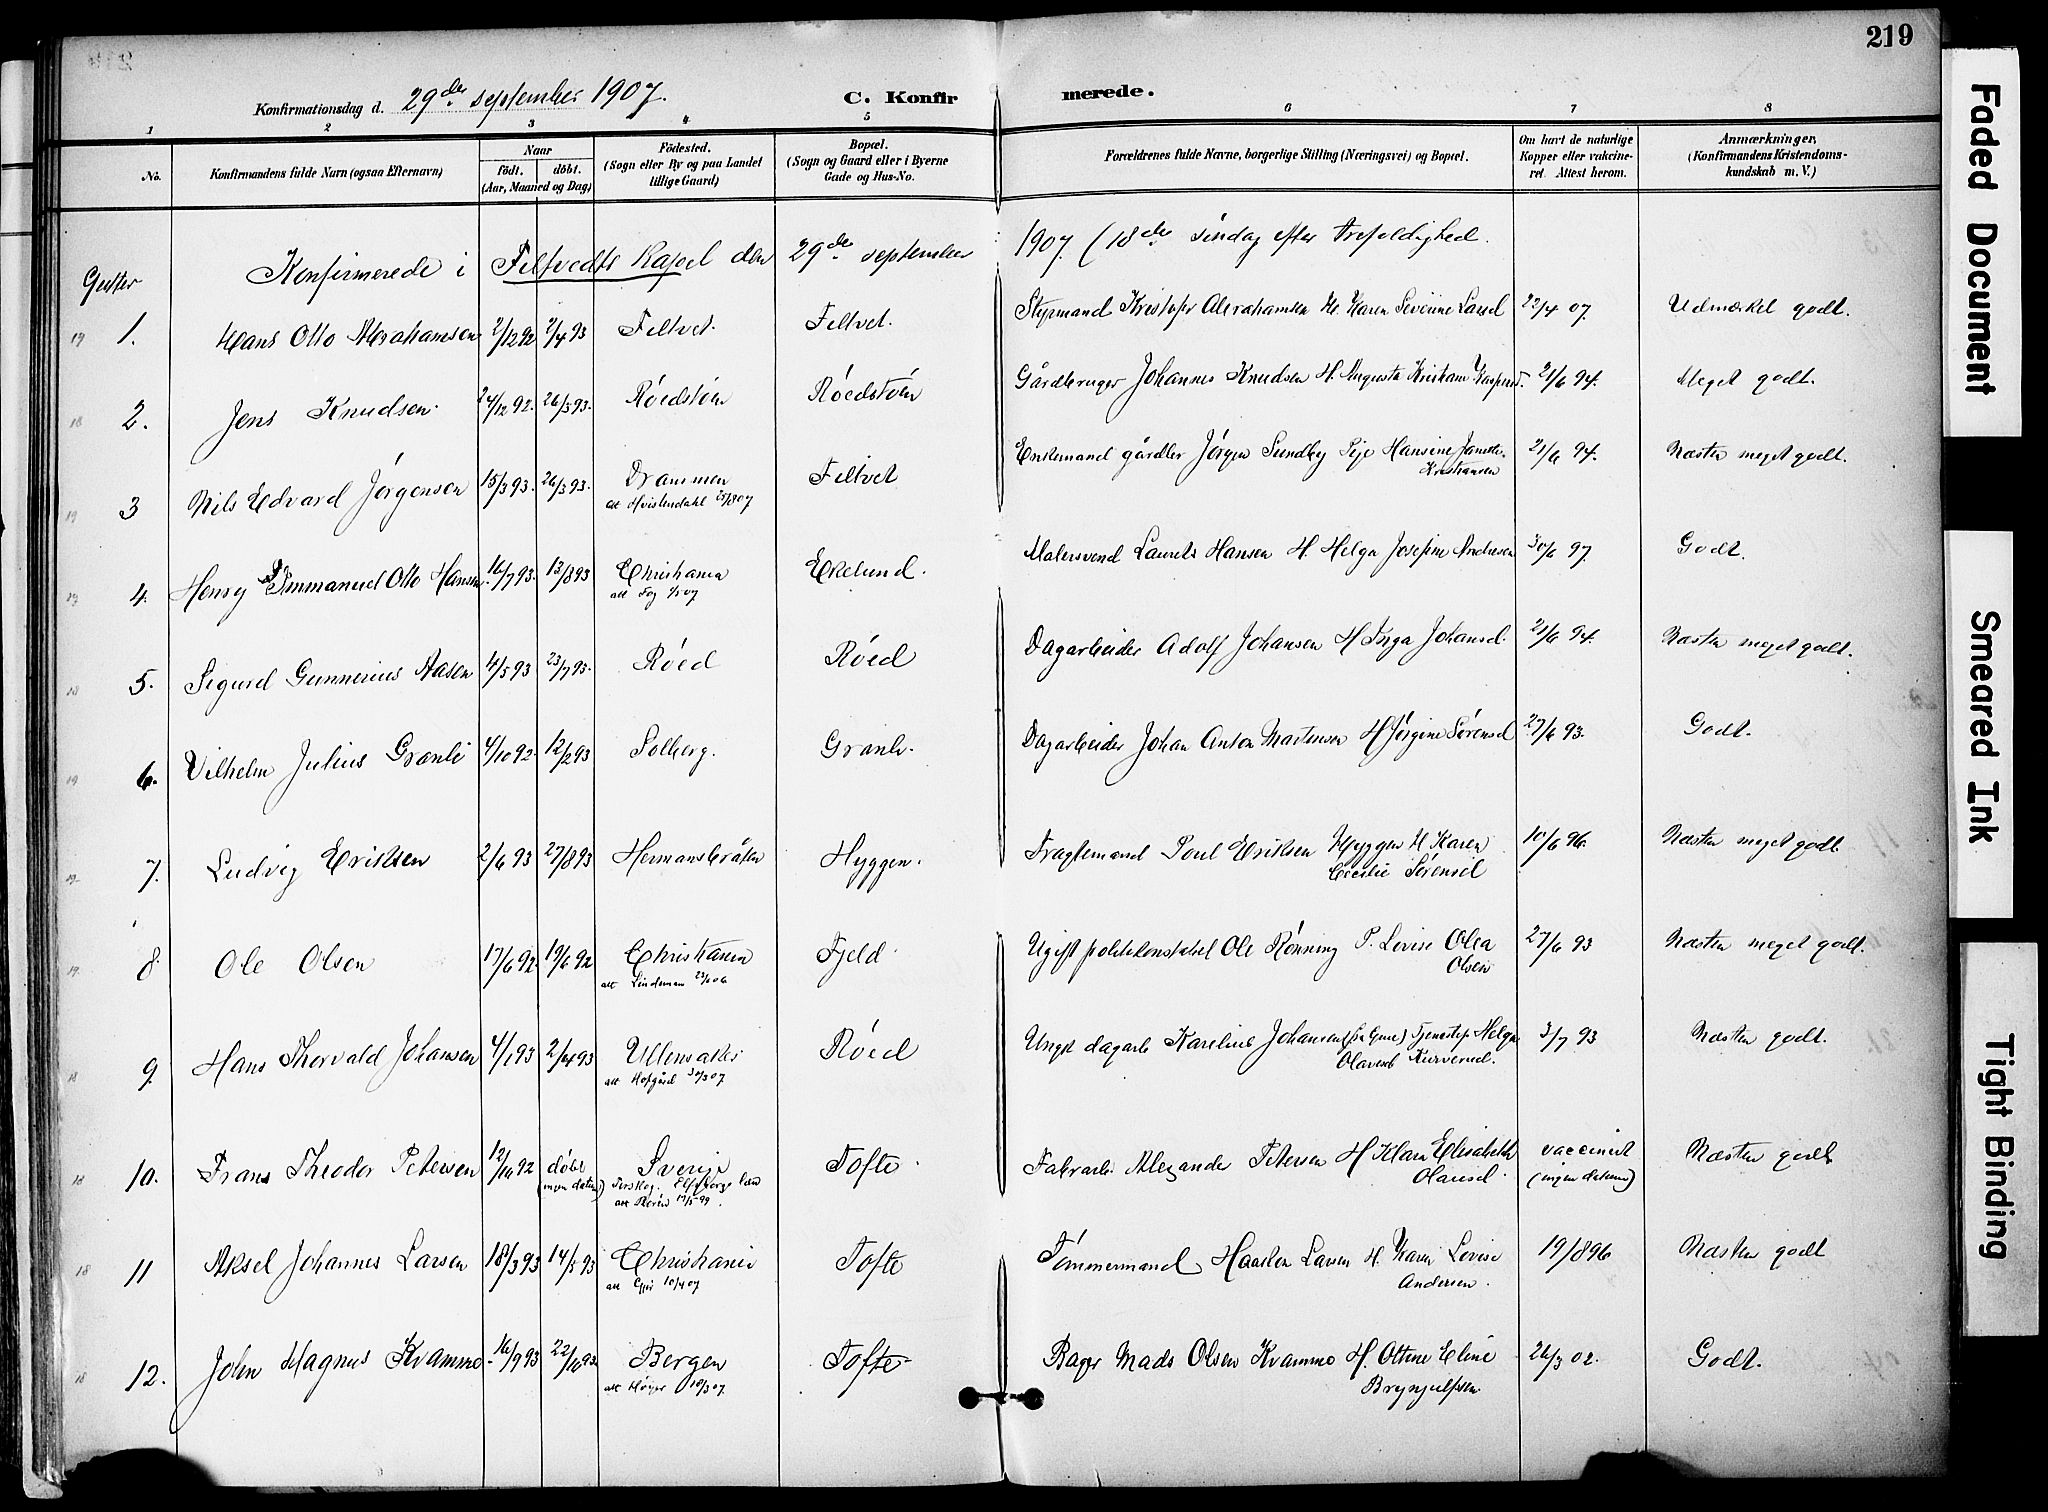 219
Konfirmationsdag d. 29de september 1907. C. Konfirmerede.
1 2 3 4 5 6 7 8
No. Konfirmandens fulde Navn (ogsaa Efternavn) Naar født. døbt. (Aar, Maaned og Dag) Födested. (Sogn eller By og paa Landet tillige Gaard) Bopæl. (Sogn og Gaard eller i Byerne Gade og Hus-No. Forældrenes fulde Navne, borgerlige Stilling (Næringsvei) og Bopæl. Om havt de naturlige Kopper eller vakcineret. Attest herom. Anmærkninger, (Konfirmandens Kristendomskundskab m. V.)
Konfirmerede i Filtvedts Kapel den 29de september 1907. (18de søndag efter trefoldighed.
Gutter
1. Hans Otto Abrahamsen 2/12 92 2/4 93 Filtvet. Filtvet. Styrmand Kristofer Abrahamsen H. Karen Severine Larsd 22/4 07. Udmærket godt.
2. Jens Knudsen 24/12 92. 26/3 93. Röedstöen Röedstöen Gårdbruger Johannes Knudsen H. Augusta 21/6 94. Meget godt.
3 Nils Edvard Jørgensen 15/3 93. 26/3 93. Drammen Filtvet Enkemand Jørgen Sundby Pige Hansine 21/6 94. Næsten meget godt.
att Hvistendahl 25/8 07 Kristiansen
4. Henry Immanuel Otto Hansen 16/7 93. 13/8 93 Christiania Ekelund. Malersvend Laurits Hansen H. Helga Josefine Andresen 30/6 97. Godt.
5. Sigurd Gunnerius Aasen 4/5 93 23/7 93. Röed Röed Dagarbeider Adolf Johansen H Inga Johansd. 21/6 94. Næsten meget godt.
6. Vilhelm Julius Granli 4/10 92. 12/2 93 Solberg. Granli. Dagarbeider Johan Anton Martinsen H Jørgine Sørensd 27/6 93. Godt.
7. Ludvig Eriksen 2/6 93 27/8 93 Hermansbråten Hyggen. Fragtemand Poul Eriksen Hyggen H Karen 10/6 96. Næsten meget godt.
Cecilie Sørensd
8. Ole Olsen 17/6 92. 19/6 92 Christiania Fjeld. Ugift politikonstabel Ole Rønning P. Lovise Olea 27/6 93 Næsten meget godt.
att Lindeman Olsen
9. Hans Thorvald Johansen 4/1 93 2/4 93 Ullensaker Röed Ungk. dagarb Johansen Helga 3/7 93 Næsten godt.
att Hofgård 30/3 07
10. Frans Theodor Petersen 12/10 92 døbt Sverige Tofte. Fabrarb. Alexander Petersen H Klara Elisabeth vaccineret Næsten godt
Olausd. (ingen datum)
11 Aksel Johannes Larsen 18/3 93 14/5 93 Christiania Tofte Tömmermand Larsen H. Karen Lovise 19/8 96 Næsten godt
att 10/4 07 Andersen.
12. John Magnus Kvamme 16/9 93 22/10 93. Bergen Tofte Bager Mads Olsen Kvamme H. Ottine Eline 26/3 02. Godt.
att 10/3 07. Brynjulfsen
Faded Document
Smeared Ink
Tight Binding